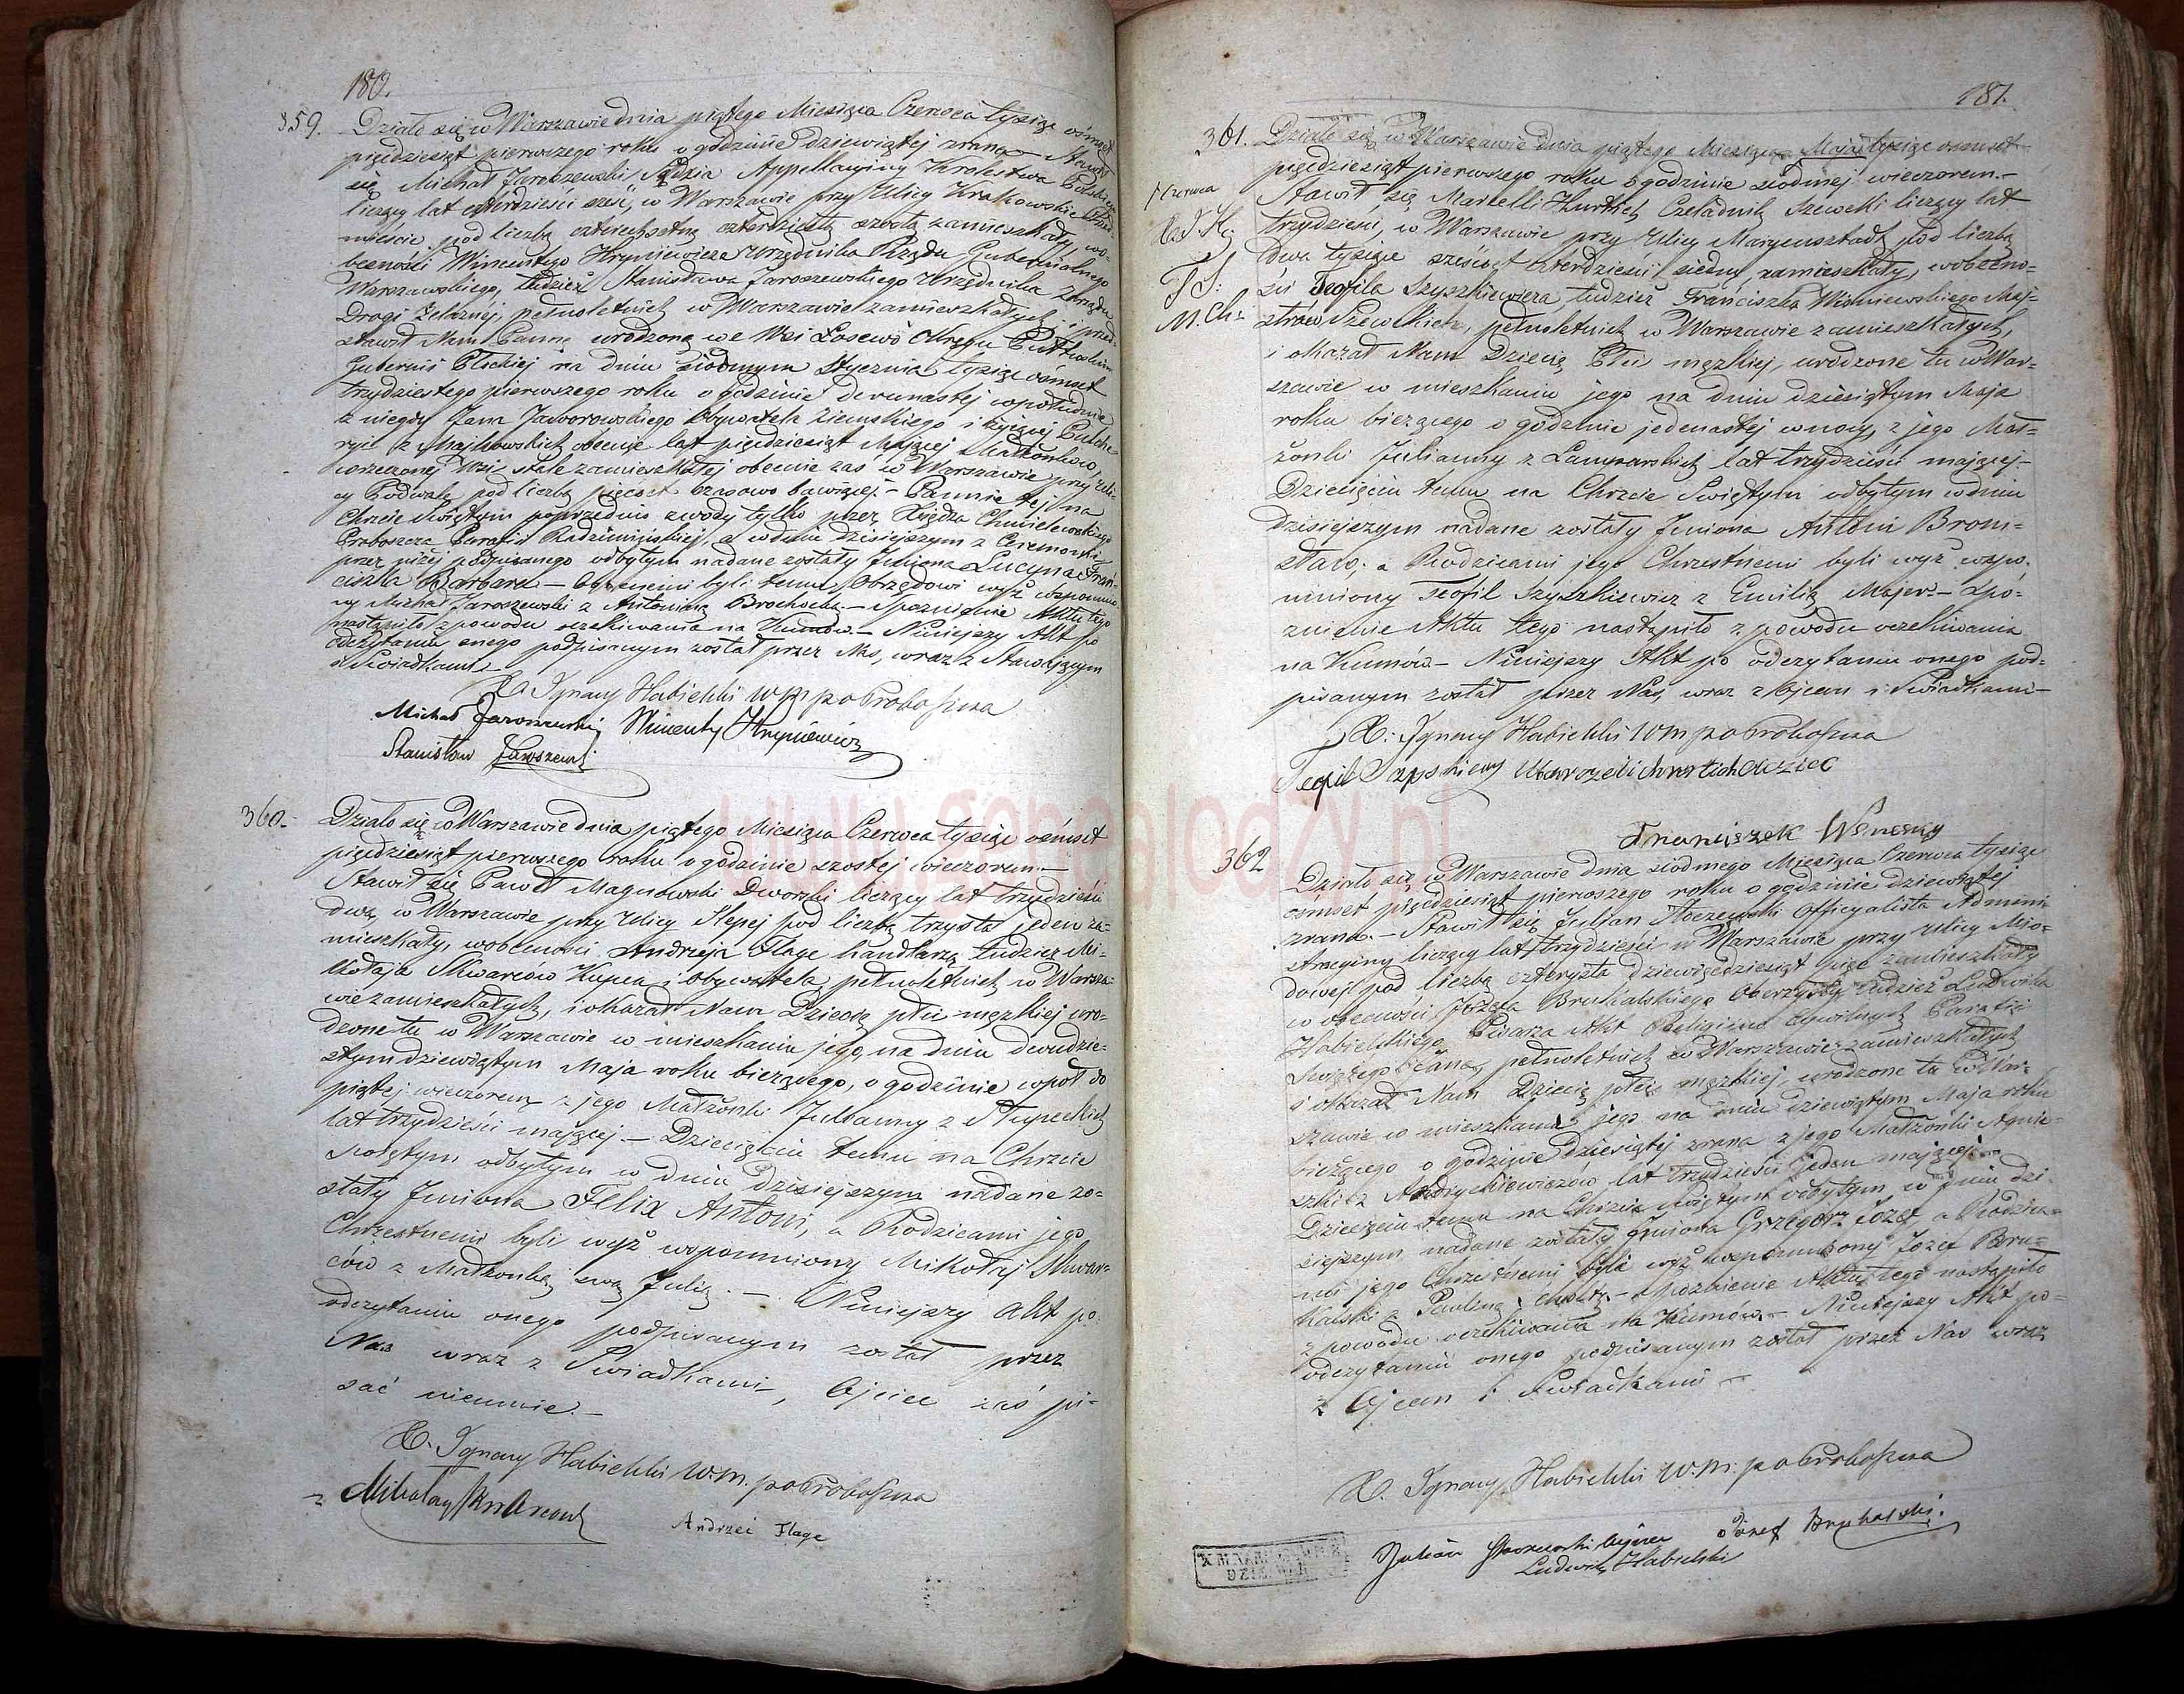 180.
359. Działo się w Warszawie dnia piątego Miesiąca Czerwca tysiąc ośmset
pięćdziesiąt pierwszego roku o godzinie dziewiątej zrana – Stawił
się Michał Jaroszewski Sędzia Appellacyjny Królestwa
liczący lat czterdzieści sześć, w Warszawie przy Ulicy Krakowskie
mieście pod liczbą czterechsetną czterdziestą szóstą zamieszkały, wo-
becności Wincentego Hryniewicza Urzędnika Rządu Gubernialnego
Warszawskiego, tudzież Stanisława Jaroszewskiego Urzędnika Zarządu
Drogi Żelaznej, pełnoletnich w Warszawie zamieszkałych i przed-
stawił Nam Pannę urodzoną we Wsi Łosewo Okręgu
Gubernii Płockiej na dniu siódmym Stycznia tysiąc ośmset
trzydziestego pierwszego roku o godzinie dwunastej w południe
z niegdy Jana Jaworowskiego Obywatela Ziemskiego i żyjącej
z Majkowskich obecnie lat pięćdziesiąt mającej Małżonków,
w rzeczonej Wsi stale zamieszkałej obecnie zaś w Warszawie przy Uli-
cy Podwale pod liczbą pięćset czasowo bawiącej. – Pannie tej na
Chrzcie Świętym poprzednio z wody tylko przez Księdza Chmielewskiego
Proboszcza Parafii a w dniu dzisiejszym z Ceremonii
przez niżej podpisanego odbytym nadane zostały Imiona Lucyna Fran-
ciszka Barbara – Obecnemi byli temu Obrzędowi wyż wspomnio-
ny Michał Jaroszewski z Antoniną Brochocką. – Spóźnienie Aktu tego
nastąpiło z powodu oczekiwania na Kumów. – Niniejszy Akt po
odczytaniu onego podpisanym został przez Nas, wraz z Stawającym
i Świadkami –
X. Ignacy Habielski W. M. po Proboszcza
Michał Jaroszewski Wincenty Hryniewicz
Stanisław Jaroszewski
360. Działo się w Warszawie dnia piątego Miesiąca Czerwca tysiąc ośmset
pięćdziesiąt pierwszego roku o godzinie szóstej wieczorem. –
Stawił się Paweł Magnowski Dworski liczący lat trzydzieści
dwa, w Warszawie przy Ulicy Ślepej pod liczbą trzysta jeden za-
mieszkały, w obecności Andrzeja Flage handlarza tudzież Mi-
kołaja Skwarców Kupca i Obywatela pełnoletnich w Warsza-
wie zamieszkałych, i okazał Nam Dziecię płci męzkiej uro-
dzone tu w Warszawie w mieszkaniu jego, na dniu dwudzie-
stym dziewiątym Maja roku bieżącego, o godzinie w pół do
piątej wieczorem z jego Małżonki Julianny z Słupeckich
lat trzydzieści mającej – Dziecięciu temu na Chrzcie
Świętym odbytym w dniu dzisiejszym nadane zo-
stały Imiona Felix Antoni, a Rodzicami jego
Chrzestnemi byli wyż wspomniony Mikołaj Skwar-
ców z Małżonką swą Julią. – Niniejszy Akt po
odczytaniu onego podpisanym został przez
Nas wraz z Świadkami, Ojciec zaś pi-
sać nieumie. –
X. Ignacy Habielski W. M. po Proboszcza
Mikołay Skwarcow
Andrzei Flage
181.
361. Działo się w Warszawie dnia piątego Miesiąca Maja tysiąc ośmset
pięćdziesiąt pierwszego roku o godzinie siódmej wieczorem. –
Czerwca
X. I. H.
T S:
M. Ch:
Stawił się Marcelli Czeladnik Szewcki liczący lat
trzydzieści, w Warszawie przy Ulicy Maryensztadt pod liczbą
Dwa tysiące sześćset czterdzieści siedm zamieszkały, w obecno-
ści Teofila Szyszkiewicza, tudzież Franciszka Wiśniewskiego Maj-
strów Szewckich, pełnoletnich w Warszawie zamieszkałych,
i okazał Nam Dziecię Płci męzkiej, urodzone tu w War-
szawie w mieszkaniu jego na dniu dziesiątym Maja
roku bieżącego o godzinie jedenastej w nocy, z jego Mał-
żonki Julianny z lat trzydzieści mającej –
Dziecięciu temu na Chrzcie Świętym odbytym w dniu
dzisiejszym nadane zostały Imiona Antoni Broni-
sław, a Rodzicami jego Chrzestnemi byli wyż wspo-
mniony Teofil Szyszkiewicz z Emilią Majer. – Spó-
źnienie Aktu tego nastąpiło z powodu oczekiwania
na Kumów – Niniejszy Akt po odczytaniu onego pod-
pisanym został przez Nas, wraz z Ojcem i Świadkami –
X. Ignacy Habielski W M po Proboszcza
Teofil
Franciszek
362 Działo się w Warszawie dnia siódmego Miesiąca Czerwca tysiąc
ośmset pięćdziesiąt pierwszego roku o godzinie dziewiątej
zrana. – Stawił się Julian Officyalista Admini-
stracyjny liczący lat trzydzieści w Warszawie przy Ulicy Mio-
dowej pod liczbą czterysta dziewięćdziesiąt pięć zamieszkały
w obecności Józefa Brukalskiego Oberżysty tudzież Ludwika
Habielskiego Pisarza Akt Religijno Cywilnych Parafii
Świętego Jana, pełnoletnich w Warszawie zamieszkałych
i okazał Nam Dziecię płci męzkiej, urodzone tu w War-
szawie w mieszkaniu jego na dniu dziewiątym Maja roku
bieżącego o godzinie dziesiątej zrana z jego Małżonki Agnie-
szki z lat trzydzieści jeden mającej. –
Dziecięciu temu na Chrzcie Świętym odbytym w dniu dzi-
siejszym nadane zostały Imiona Grzegorz Józef a Rodzica-
mi jego Chrzestnemi byli wyż wspomniony Józef Bru-
kalski z Pauliną – Spóźnienie Aktu tego nastąpiło
z powodu oczekiwania na Kumów. – Niniejszy Akt po
odczytaniu onego podpisanym został przez Nas wraz
z Ojcem i Świadkami –
X. Ignacy Habielski W. M. po Proboszcza
Julian Ojciec Józef Brukalski.
Ludwik Habielski
www.genealodzy.pl